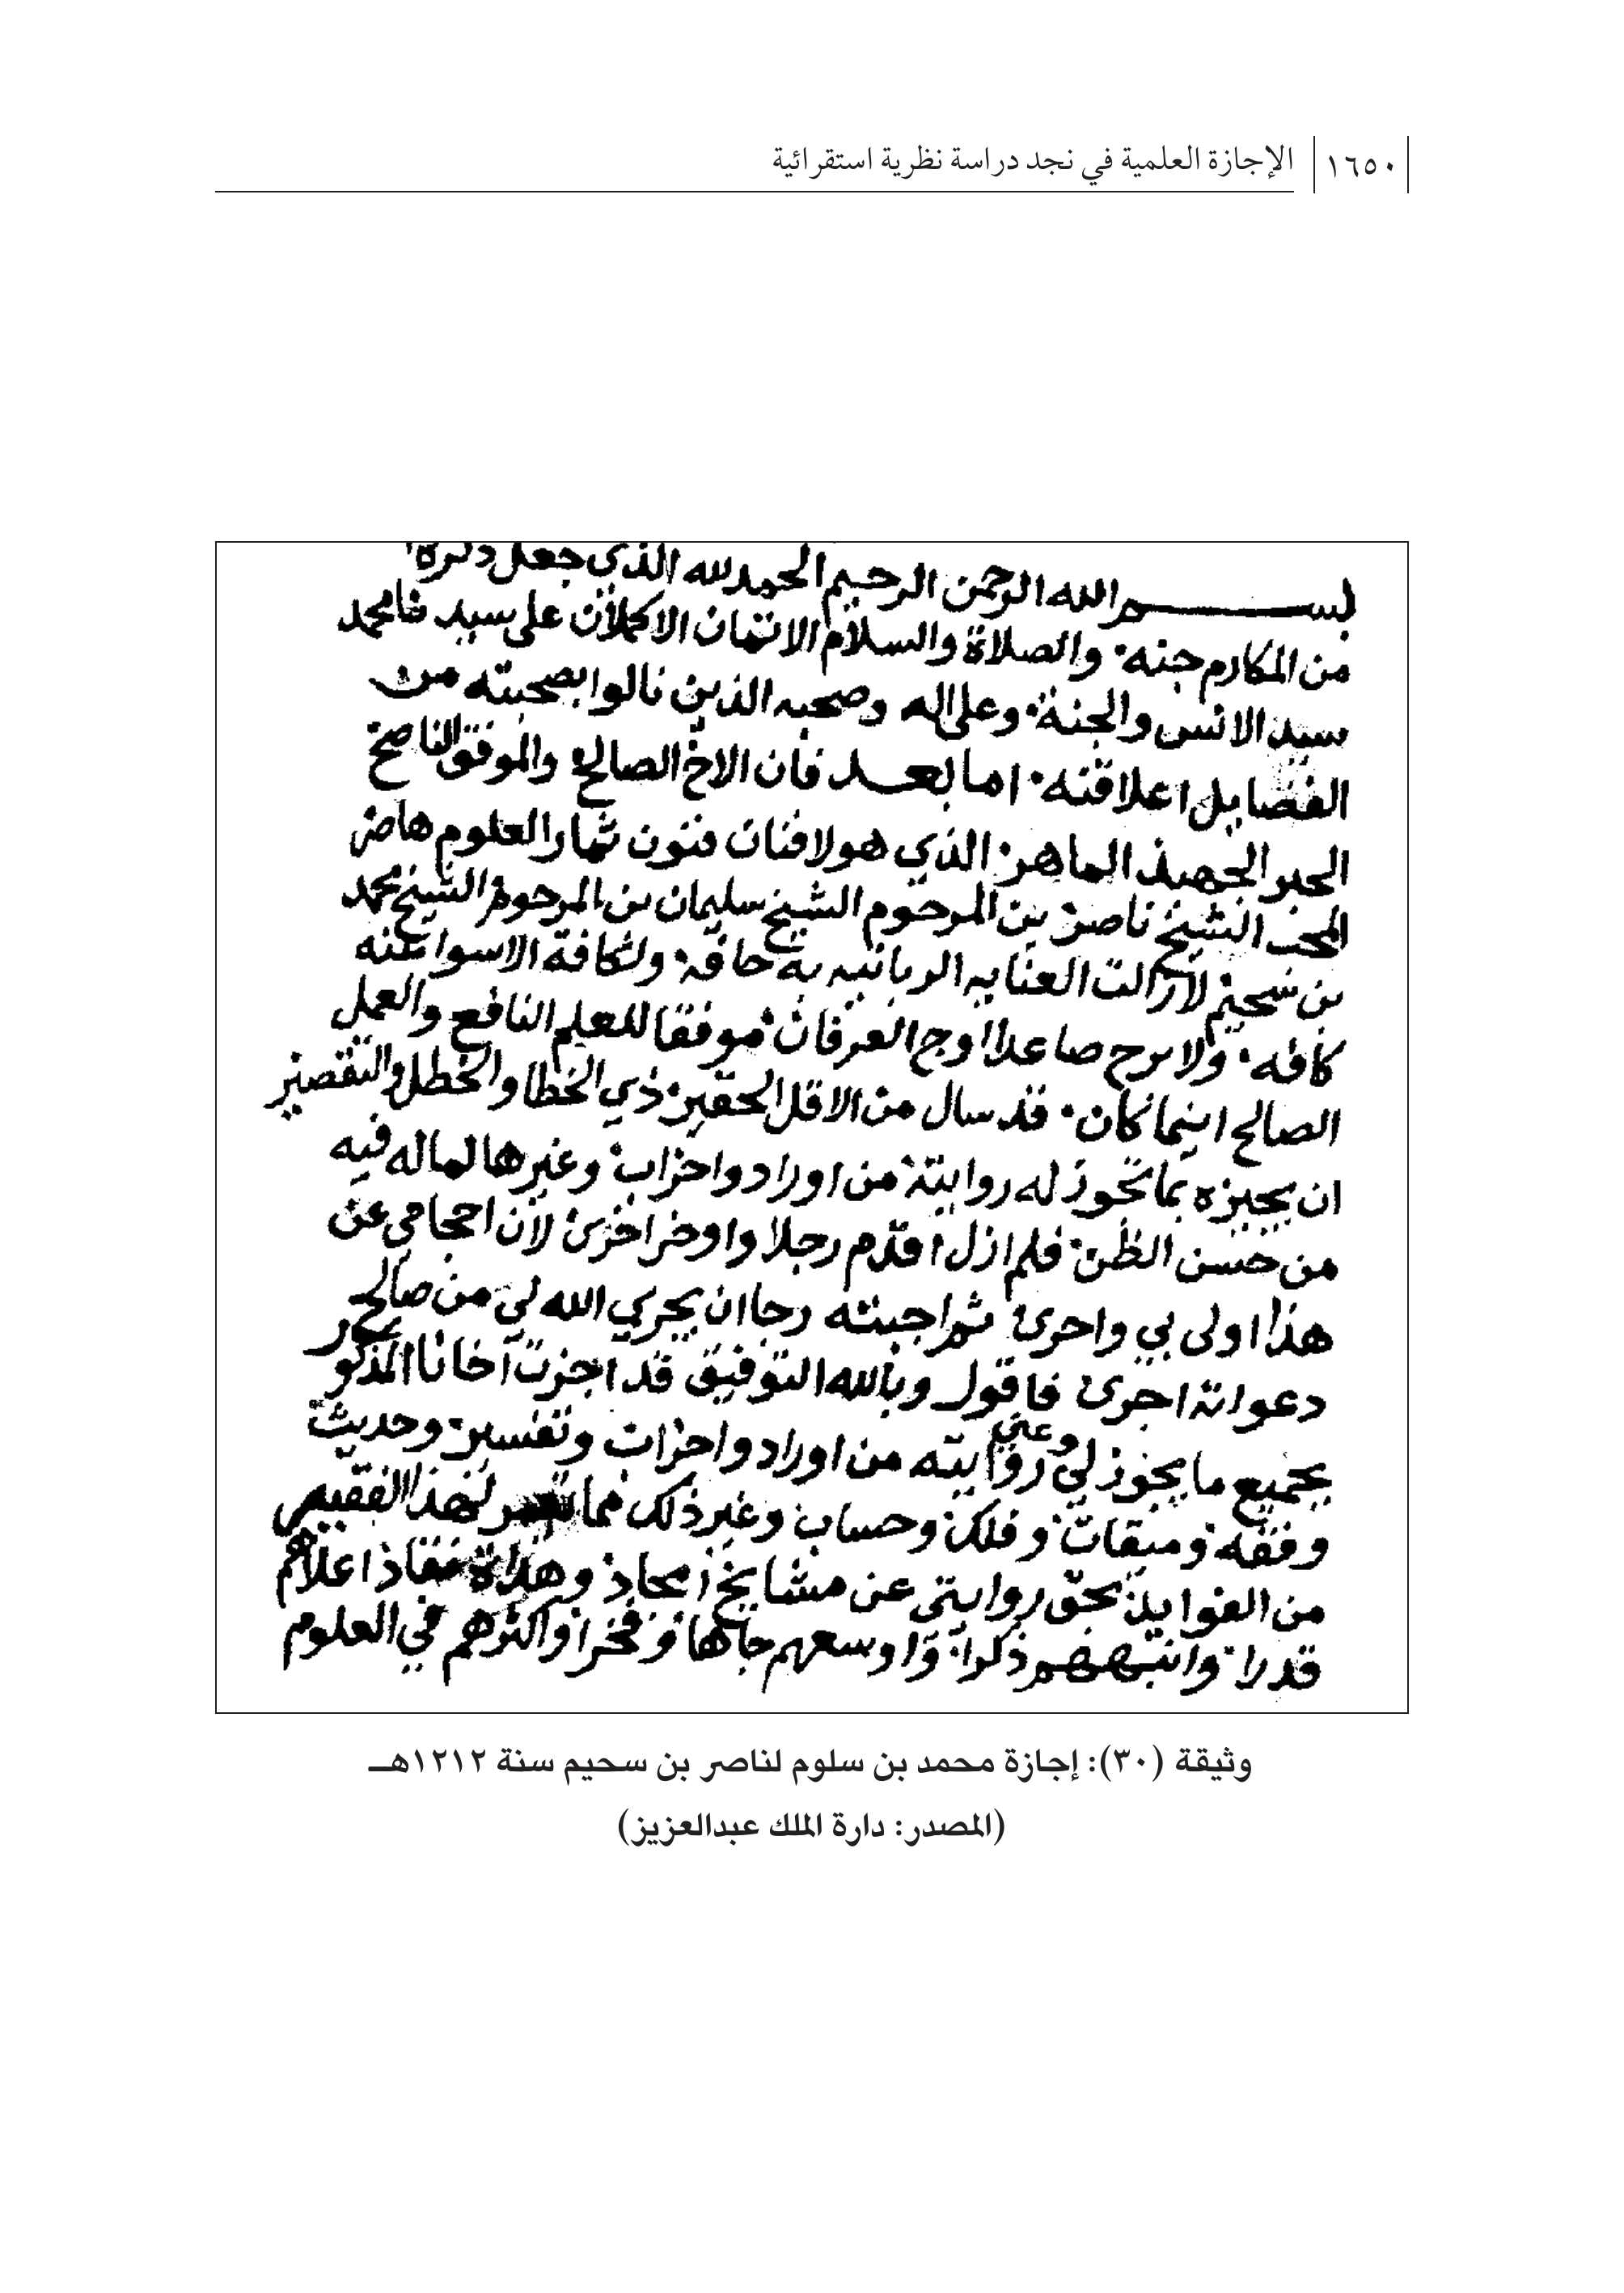 ١٦٥٠ الإجازة العلمية في نجد دراسة نظرية استقرائية
بسم الله الرحمن الرحيم الحمد لله الذي جعل ذكره
من المكارم جنه والصلاة والسلام الاتمان الاكملان على سيدنا محمد
سيد الانس والجنة وعلى اله وصحبه الذين نالوا بصحبته من
الفضايل اعلا قنه اما بعد فان الاخ الصالح والموفق الناصح
الحبر الجهبذ الماهر الذي هو لافنان فنون ثمار العلوم هاصر
المحب الشيخ ناصر بن المرحوم الشيخ سليمان بن المرحوم الشيخ محمد
بن سحيم لازالت العنايه الربانيه به حافه ولكافة الاسوا عنه
كافه ولا برح صاعدا اوج العرفان موفقا للعلم النافع والعمل
الصالح اينما كان قد سال من الاقل الحقير ذي الخطا والخطل والتقصير
ان يجيزه بما تجوز له روايته من اوراد واحزاب وغيرها لماله فيه
من حسن الظن فلم ازل اقدم رجلا واوخر اخرى لان احجامي عن
هذا اولى بي واحرى ثم اجبته رجا ان يجري الله لي من صالح
دعواته اجرى فاقول وبالله التوفيق قد اجزت اخانا المذكور
بجميع ما يجوز لي وعني روايته من اوراد واحزاب وتفسير وحديث
وفقه وميقات وفلك وحساب وغير ذلك مما لهذا الفقير
من الفوايد بحق روايتي عن مشايخ امجاد وهداة اعلاهم
قدرا وانبههم ذكرا واوسعهم جاها وفخرا واكثرهم في العلوم
وثيقة (٣٠): إجازة محمد بن سلوم لناصر بن سحيم سنة ١٢١٢هـ
(المصدر: دارة الملك عبدالعزيز)